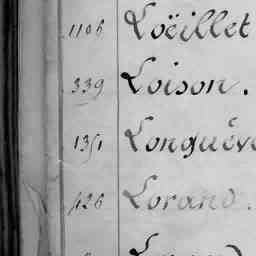 1106 Loëillet
339 Loison.
1351 Longuév
126 Lorand.